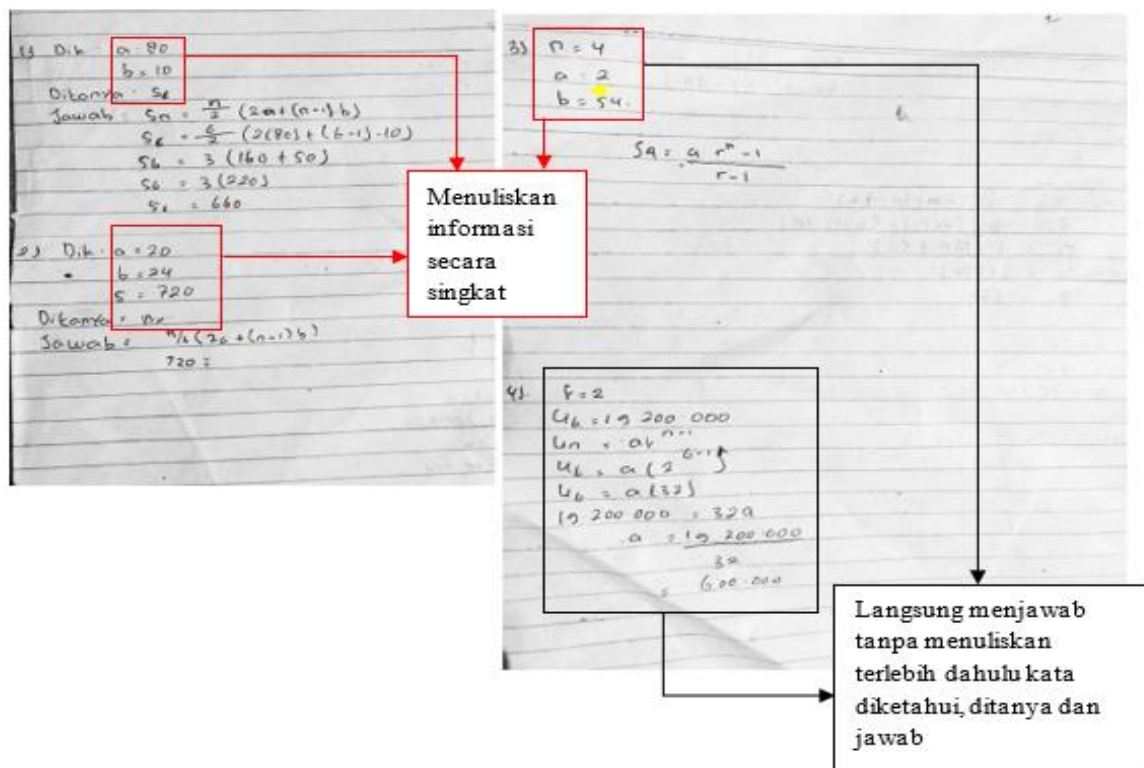 1) Dik : a = 80
b = 10
Ditanya : S6
Jawab : Sn = n/2 (2a + (n-1) b)
S6 = 6/2 (2(80) + (6-1) . 10)
S6 = 3 (160 + 50)
S6 = 3 (220)
S6 = 660
2) Dik : a = 20
b = 24
S = 720
Ditanya = n
Jawab = n/2 (2a + (n-1) b)
720 =
3) n = 4
a = 2
b = 54.
S4 = a r^n - 1
r - 1
Menuliskan
informasi
secara
singkat
4). r = 2
U6 = 19 200 000
Un = ar^n-1
U6 = a (2^6-1)
U6 = a (32)
19 200 000 = 32a
a = 19 200 000
32
= 600.000
Langsung menjawab
tanpa menuliskan
terlebih dahulu kata
diketahui, ditanya dan
jawab